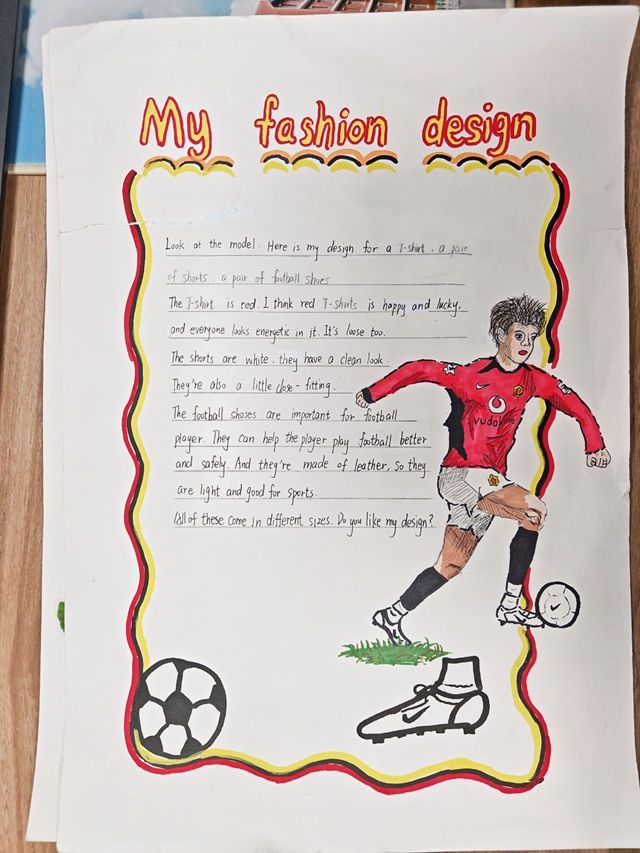 My fashion design
Look at the model. Here is my design for a T-shirt, a pair
of shorts, a pair of football shoes
The T-shirt is red. I think red T-shirts is happy and lucky,
and everyone looks energetic in it. It's loose too.
The shorts are white. they have a clean look.
They're also a little close-fitting.
The football shoses are important for football
player. They can help the player play football better
and safely. And they're made of leather, so they
are light and good for sports.
All of these come in different sizes. Do you like my design?
vodafone